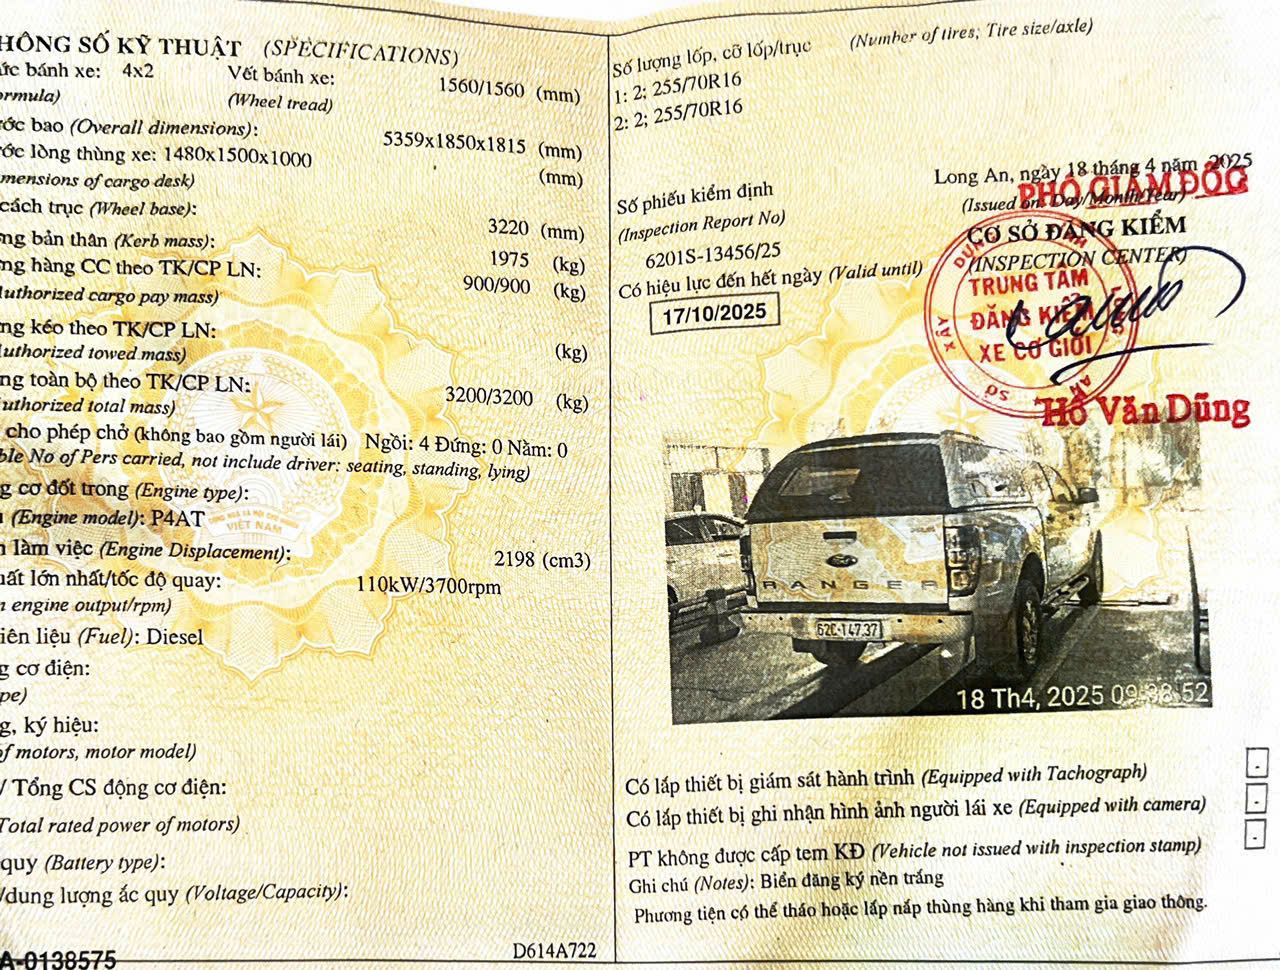 HÔNG SỐ KỸ THUẬT (SPECIFICATIONS)
ức bánh xe: 4x2 Vết bánh xe: 1560/1560 (mm)
ormula) (Wheel tread)
ớc bao (Overall dimensions): 5359x1850x1815 (mm)
ớc lòng thùng xe: 1480x1500x1000 (mm)
mensions of cargo desk)
cách trục (Wheel base): 3220 (mm)
ng bản thân (Kerb mass): 1975 (kg)
ng hàng CC theo TK/CP LN: 900/900 (kg)
uthorized cargo pay mass)
ng kéo theo TK/CP LN: (kg)
uthorized towed mass)
ng toàn bộ theo TK/CP LN: 3200/3200 (kg)
uthorized total mass)
cho phép chở (không bao gồm người lái) Ngồi: 4 Đứng: 0 Nằm: 0
ble No of Pers carried, not include driver: seating, standing, lying)
g cơ đốt trong (Engine type):
(Engine model): P4AT
làm việc (Engine Displacement): 2198 (cm3)
uất lớn nhất/tốc độ quay: 110kW/3700rpm
m engine output/rpm)
iên liệu (Fuel): Diesel
g cơ điện:
pe)
g, ký hiệu:
of motors, motor model)
/ Tổng CS động cơ điện:
Total rated power of motors)
quy (Battery type):
/dung lượng ắc quy (Voltage/Capacity):
A-0138575
D614A722
CỘNG HÒA XÃ HỘI CHỦ NGHĨA
VIỆT NAM
Số lượng lốp, cỡ lốp/trục (Number of tires; Tire size/axle)
1: 2; 255/70R16
2: 2; 255/70R16
Long An, ngày 18 tháng 4 năm 2025
(Issued on: Day/Month/Year)
PHÓ GIÁM ĐỐC
CƠ SỞ ĐĂNG KIỂM
(INSPECTION CENTER)
Số phiếu kiểm định
(Inspection Report No)
6201S-13456/25
Có hiệu lực đến hết ngày (Valid until)
17/10/2025
TRUNG TÂM
ĐĂNG KIỂM
XE CƠ GIỚI
SỞ XÂY DỰNG
Hồ Văn Dũng
RANGER
62C-147.37
18 Th4, 2025 09:38:52
Có lắp thiết bị giám sát hành trình (Equipped with Tachograph) -
Có lắp thiết bị ghi nhận hình ảnh người lái xe (Equipped with camera) -
PT không được cấp tem KĐ (Vehicle not issued with inspection stamp) -
Ghi chú (Notes): Biển đăng ký nền trắng
Phương tiện có thể tháo hoặc lắp nắp thùng hàng khi tham gia giao thông.